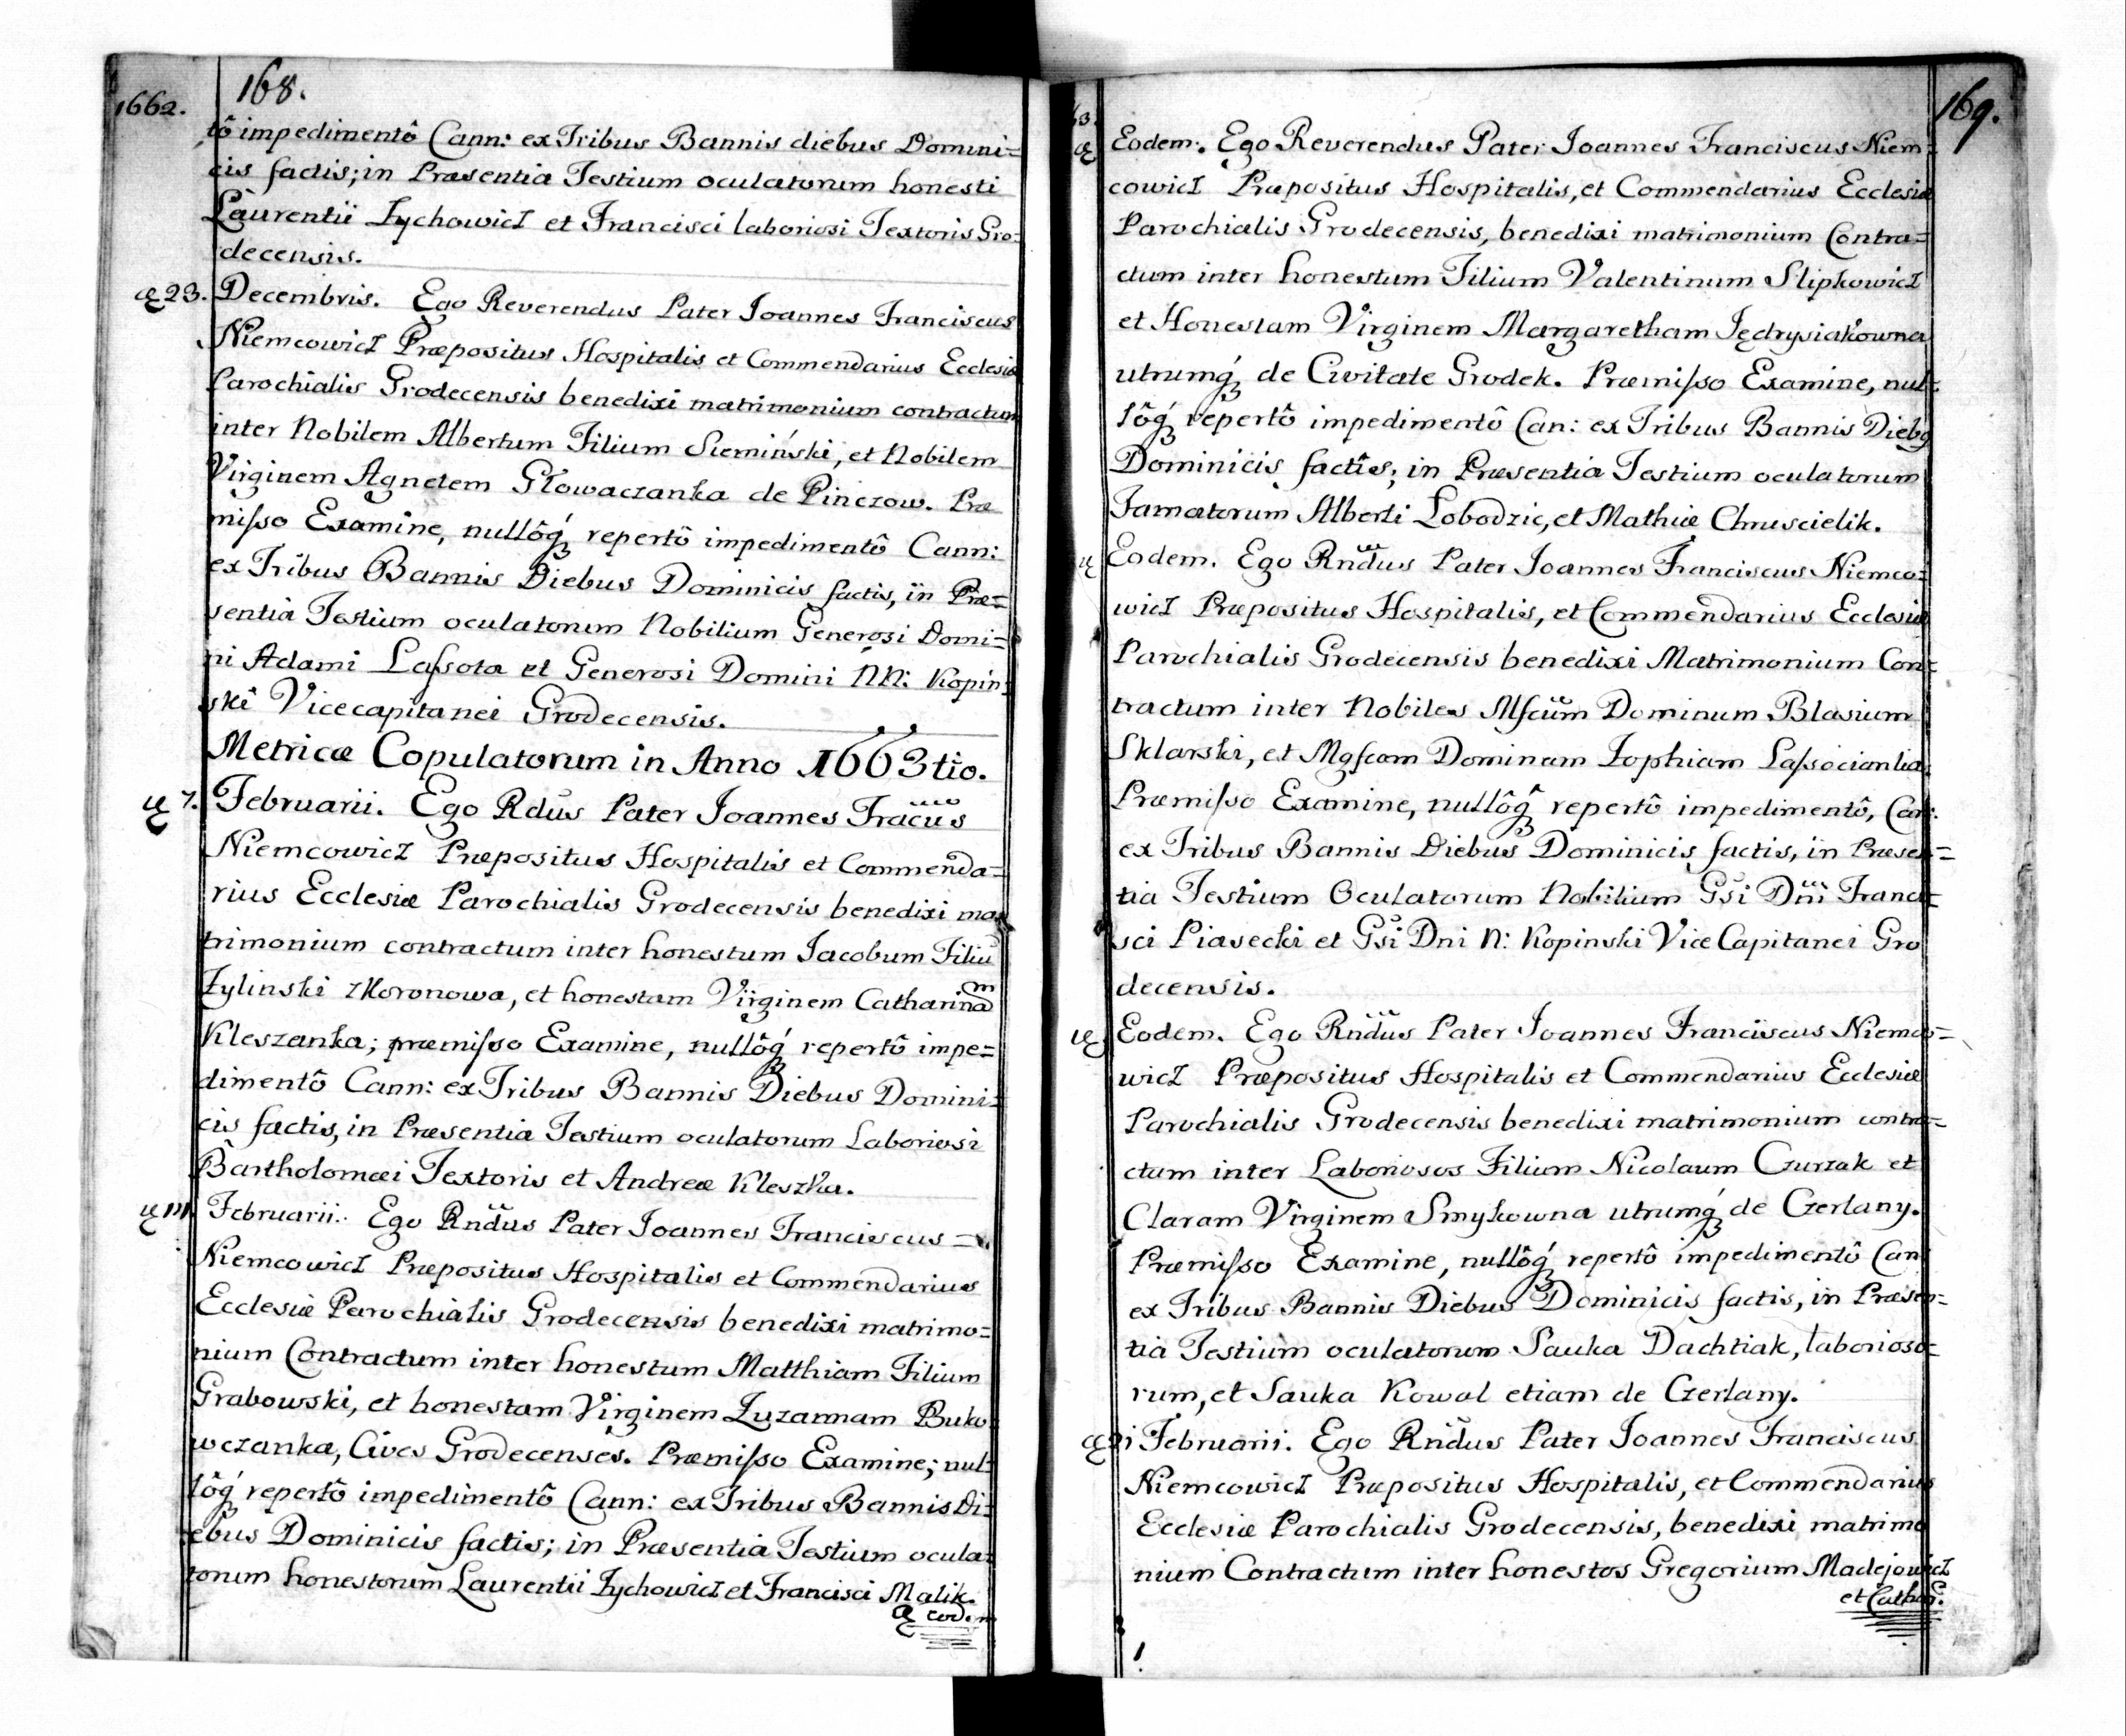 1662.
168.
tô impedimentô Cann: ex Tribus Bannis diebus Domini=
cis factis; in Præsentia Testium oculatorum honesti
Laurentii Zychowicz et Francisci laboriosi Textoris Gro=
decensis.
23. Decembris. Ego Reverendus Pater Joannes Franciscus
Niemcowicz Præpositus Hospitalis et Commendarius Ecclesiæ
Parochialis Grodecensis benedixi matrimonium contractum
inter Nobilem Albertum Filium Siemiński, et Nobilem
Virginem Agnetem Głowaczanka de Pinczow. Præ
misso Examine, nullôq́ repertô impedimentô Cann:
ex Tribus Bannis Diebus Dominicis factis, in Præ=
sentia Testium oculatorum Nobilium Generosi Domi=
ni Adami Lassota et Generosi Domini NN: Kopin=
ski Vicecapitanei Grodecensis.
Metricæ Copulatorum in Anno 1663tio.
7. Februarii. Ego Rdus Pater Joannes Fracus
Niemcowicz Præpositus Hospitalis et Commenda=
rius Ecclesiæ Parochialis Grodecensis benedixi ma
trimonium contractum inter honestum Jacobum Filiu
Zylinski z Koronowa, et honestam Virginem Catharinam
Kleszanka; præmisso Examine, nullôq́ repertô impe=
dimentô Cann: ex Tribus Bannis Diebus Domini=
cis factis, in Præsentia Testium oculatorum Laboriosi
Bartholomæi Textoris et Andreæ Kleszka.
Februarii. Ego Rndus Pater Joannes Franciscus =
Niemcowicz Præpositus Hospitalis et Commendarius
Ecclesiæ Parochialis Grodecensis benedixi matrimo=
nium Contractum inter honestum Matthiam Filium
Grabowski, et honestam Virginem Zuzannam Buko=
wczanka, Cives Grodecenses. Præmisso Examine; nul=
lôq́ repertô impedimentô Cann: ex Tribus Bannis Di=
ebus Dominicis factis; in Præsentia Testium ocula=
torum honestorum Laurentii Zychowicz et Francisci Malik.
169.
Eodem. Ego Reverendus Pater Joannes Franciscus Niem=
cowicz Præpositus Hospitalis, et Commendarius Ecclesiæ
Parochialis Grodecensis, benedixi matrimonium Contra=
ctum inter honestum Filium Valentinum Slipkowicz
et Honestam Virginem Margaretham Jędrysiakowna
utrumq́ de Civitate Grodek. Præmisso Examine, nul=
lôq́ repertô impedimentô Can: ex Tribus Bannis Diebq
Dominicis factis; in Præsentia Testium oculatorum
Famatorum Alberti Lobodzic, et Mathiæ Chmuscielik.
Eodem. Ego Rndus Pater Joannes Franciscus Niemco=
wicz Præpositus Hospitalis, et Commendarius Ecclesiæ
Parochialis Grodecensis benedixi Matrimonium Con=
tractum inter Nobiles Mfcum Dominum Blasium
Sklarski, et Mgfcam Dominam Zophiam Lassocianka.
Præmisso Examine, nullôq́ repertô impedimentô, Can:
ex Tribus Bannis Diebus Dominicis factis, in Præsen=
tia Testium Oculatorum Nobilium Gsi Dni Franci=
sci Piasecki et Gsi Dni N: Kopinski Vice Capitanei Gro
decensis.
Eodem. Ego Rndus Pater Joannes Franciscus Niemco=
wicz Præpositus Hospitalis et Commendarius Ecclesiæ
Parochialis Grodecensis benedixi matrimonium contra=
ctum inter Laboriosos Filium Nicolaum Czurzak et
Claram Virginem Smykowna utrumq́ de Czerlany.
Præmisso Examine, nullôq́ repertô impedimentô Can
ex Tribus Bannis Diebus Dominicis factis, in Præsen=
tia Testium oculatorum Sauka Dachtiak, laborioso=
rum, et Sauka Kowal etiam de Czerlany.
Februarii. Ego Rndus Pater Joannes Franciscus
Niemcowicz Præpositus Hospitalis, et Commendarius
Ecclesiæ Parochialis Grodecensis, benedixi matrimo
nium Contractum inter honestos Gregorium Madejowicz
et Cathar.